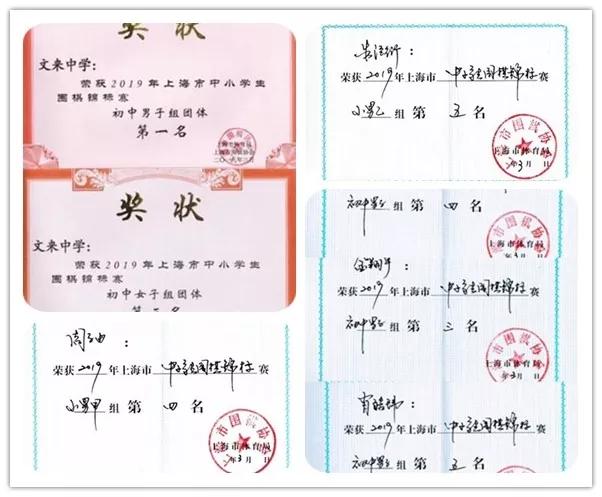 奖状
文来中学：
荣获2019年上海市中小学生
围棋锦标赛
初中男子组团体
第一名
上海市体育局
上海市围棋协会
二〇一九年三月
奖状
文来中学：
荣获2019年上海市中小学生
围棋锦标赛
初中女子组团体
荣获2019年上海市中小学生围棋锦标赛
小男甲组第四名
年3月 日
荣获2019年上海市中小学生围棋锦标赛
小男乙组第五名
市围棋协
上海市体育局
年3月 日
初中男子组第四名
上海市体育局
年3月 日
荣获2019年上海市中小学生围棋锦标赛
初中男子组第三名
市围棋协会
上海市体育局
年3月 日
荣获2019年上海市中小学生围棋锦标赛
初中男子组第五名
年3月 日